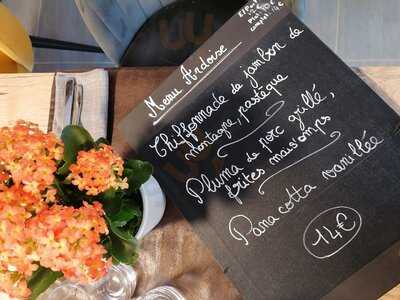 Menu Ardoise
Chiffonnade de jambon de
montagne, pastèque
Pluma de porc grillé,
frites maison
Pana cotta vanillée
14€